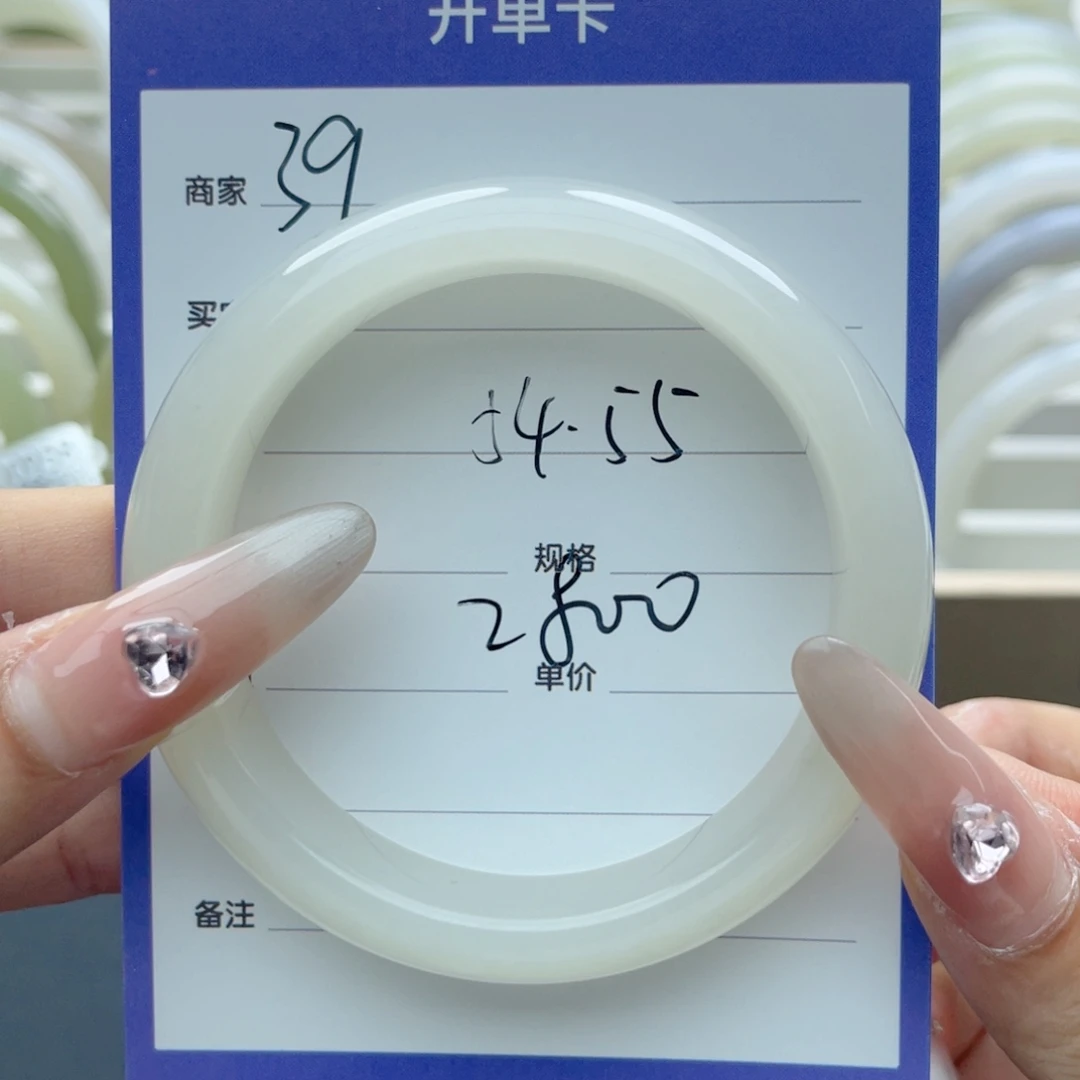 开单卡
商家 39
买
54.55
规格
2800
单价
备注